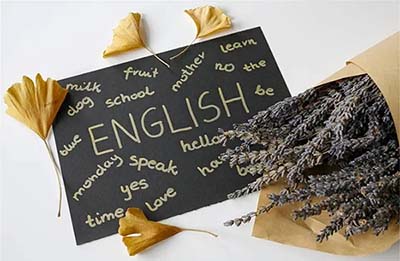 milk fruit mother learn
dog school no the
blue ENGLISH be
hello
monday speak
yes
time love